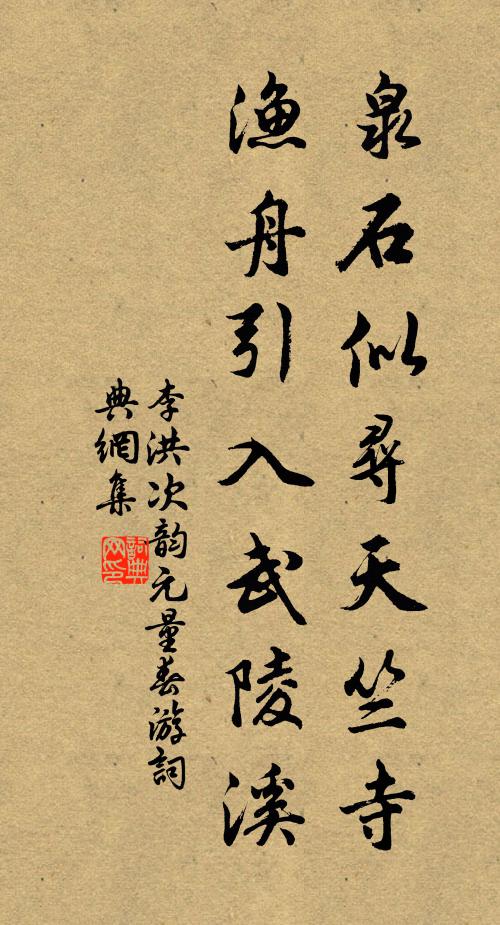 泉石似尋天竺寺
漁舟引入武陵溪
李洪次韵元量春游詞
典網集
詞典网印